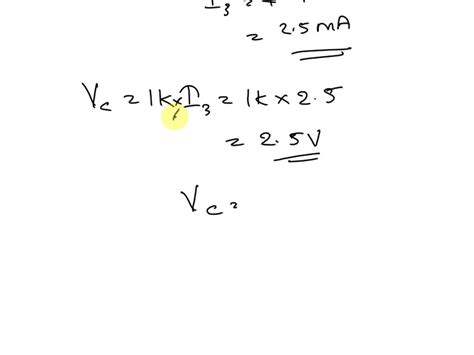 I₃ =
= 2.5 mA
Vc = 1k × I₃ = 1k × 2.5
= 2.5V
Vc =